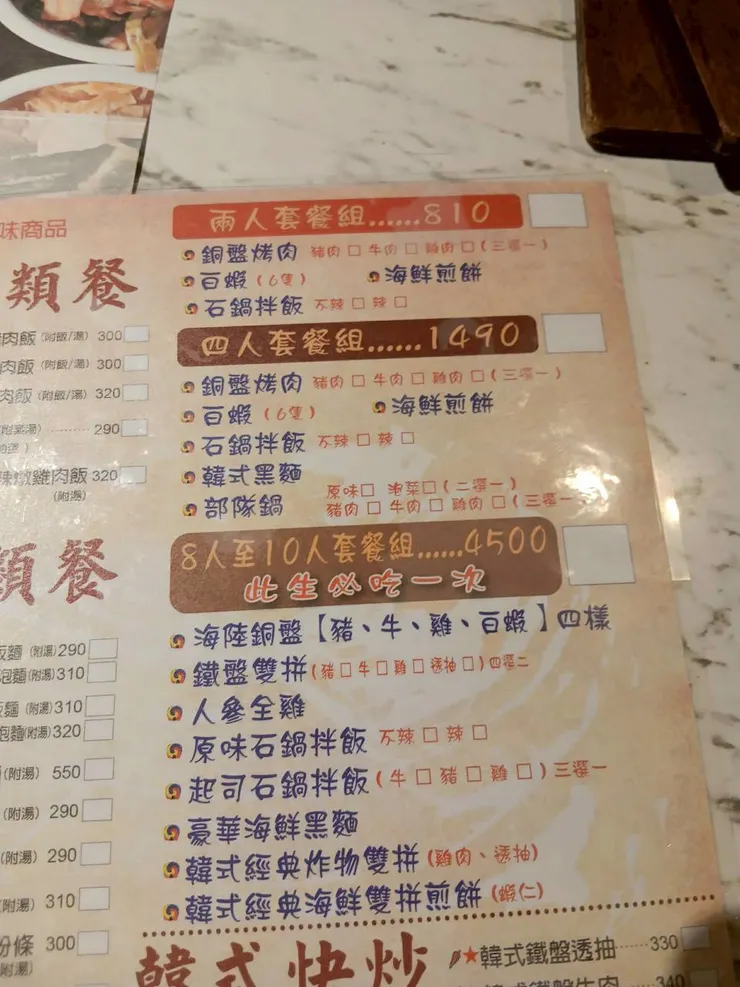 味商品
類餐
肉飯 (附飯/湯) 300
肉飯 (附飯/湯) 300
肉飯 (附飯/湯) 320
290
味燉雞肉飯 320
(附湯)
類餐
飯麵 (附湯) 290
泡麵 (附湯) 310
飯麵 (附湯) 310
泡麵 (附湯) 320
(附湯) 550
(附湯) 290
(附湯) 290
(附湯) 310
粉條 300
附湯)
兩人套餐組......810
銅盤烤肉 豬肉 □ 牛肉 □ 雞肉 □ (三選一)
白蝦 (6隻) 海鮮煎餅
石鍋拌飯 不辣 □ 辣 □
四人套餐組......1490
銅盤烤肉 豬肉 □ 牛肉 □ 雞肉 □ (三選一)
白蝦 (6隻) 海鮮煎餅
石鍋拌飯 不辣 □ 辣 □
韓式黑麵
部隊鍋 原味 □ 泡菜 □ (二選一)
豬肉 □ 牛肉 □ 雞肉 □ (三選一
8人至10人套餐組......4500
此生必吃一次
海陸銅盤【豬、牛、雞、白蝦】四樣
鐵盤雙拼 (豬 □ 牛 □ 雞 □ 透抽 □) 四選二
人參全雞
原味石鍋拌飯 不辣 □ 辣 □
起司石鍋拌飯 (牛 □ 豬 □ 雞 □) 三選一
豪華海鮮黑麵
韓式經典炸物雙拼 (雞肉、透抽)
韓式經典海鮮雙拼煎餅 (蝦仁)
韓式快炒
★韓式鐵盤透抽......330
韓式鐵盤牛肉 340